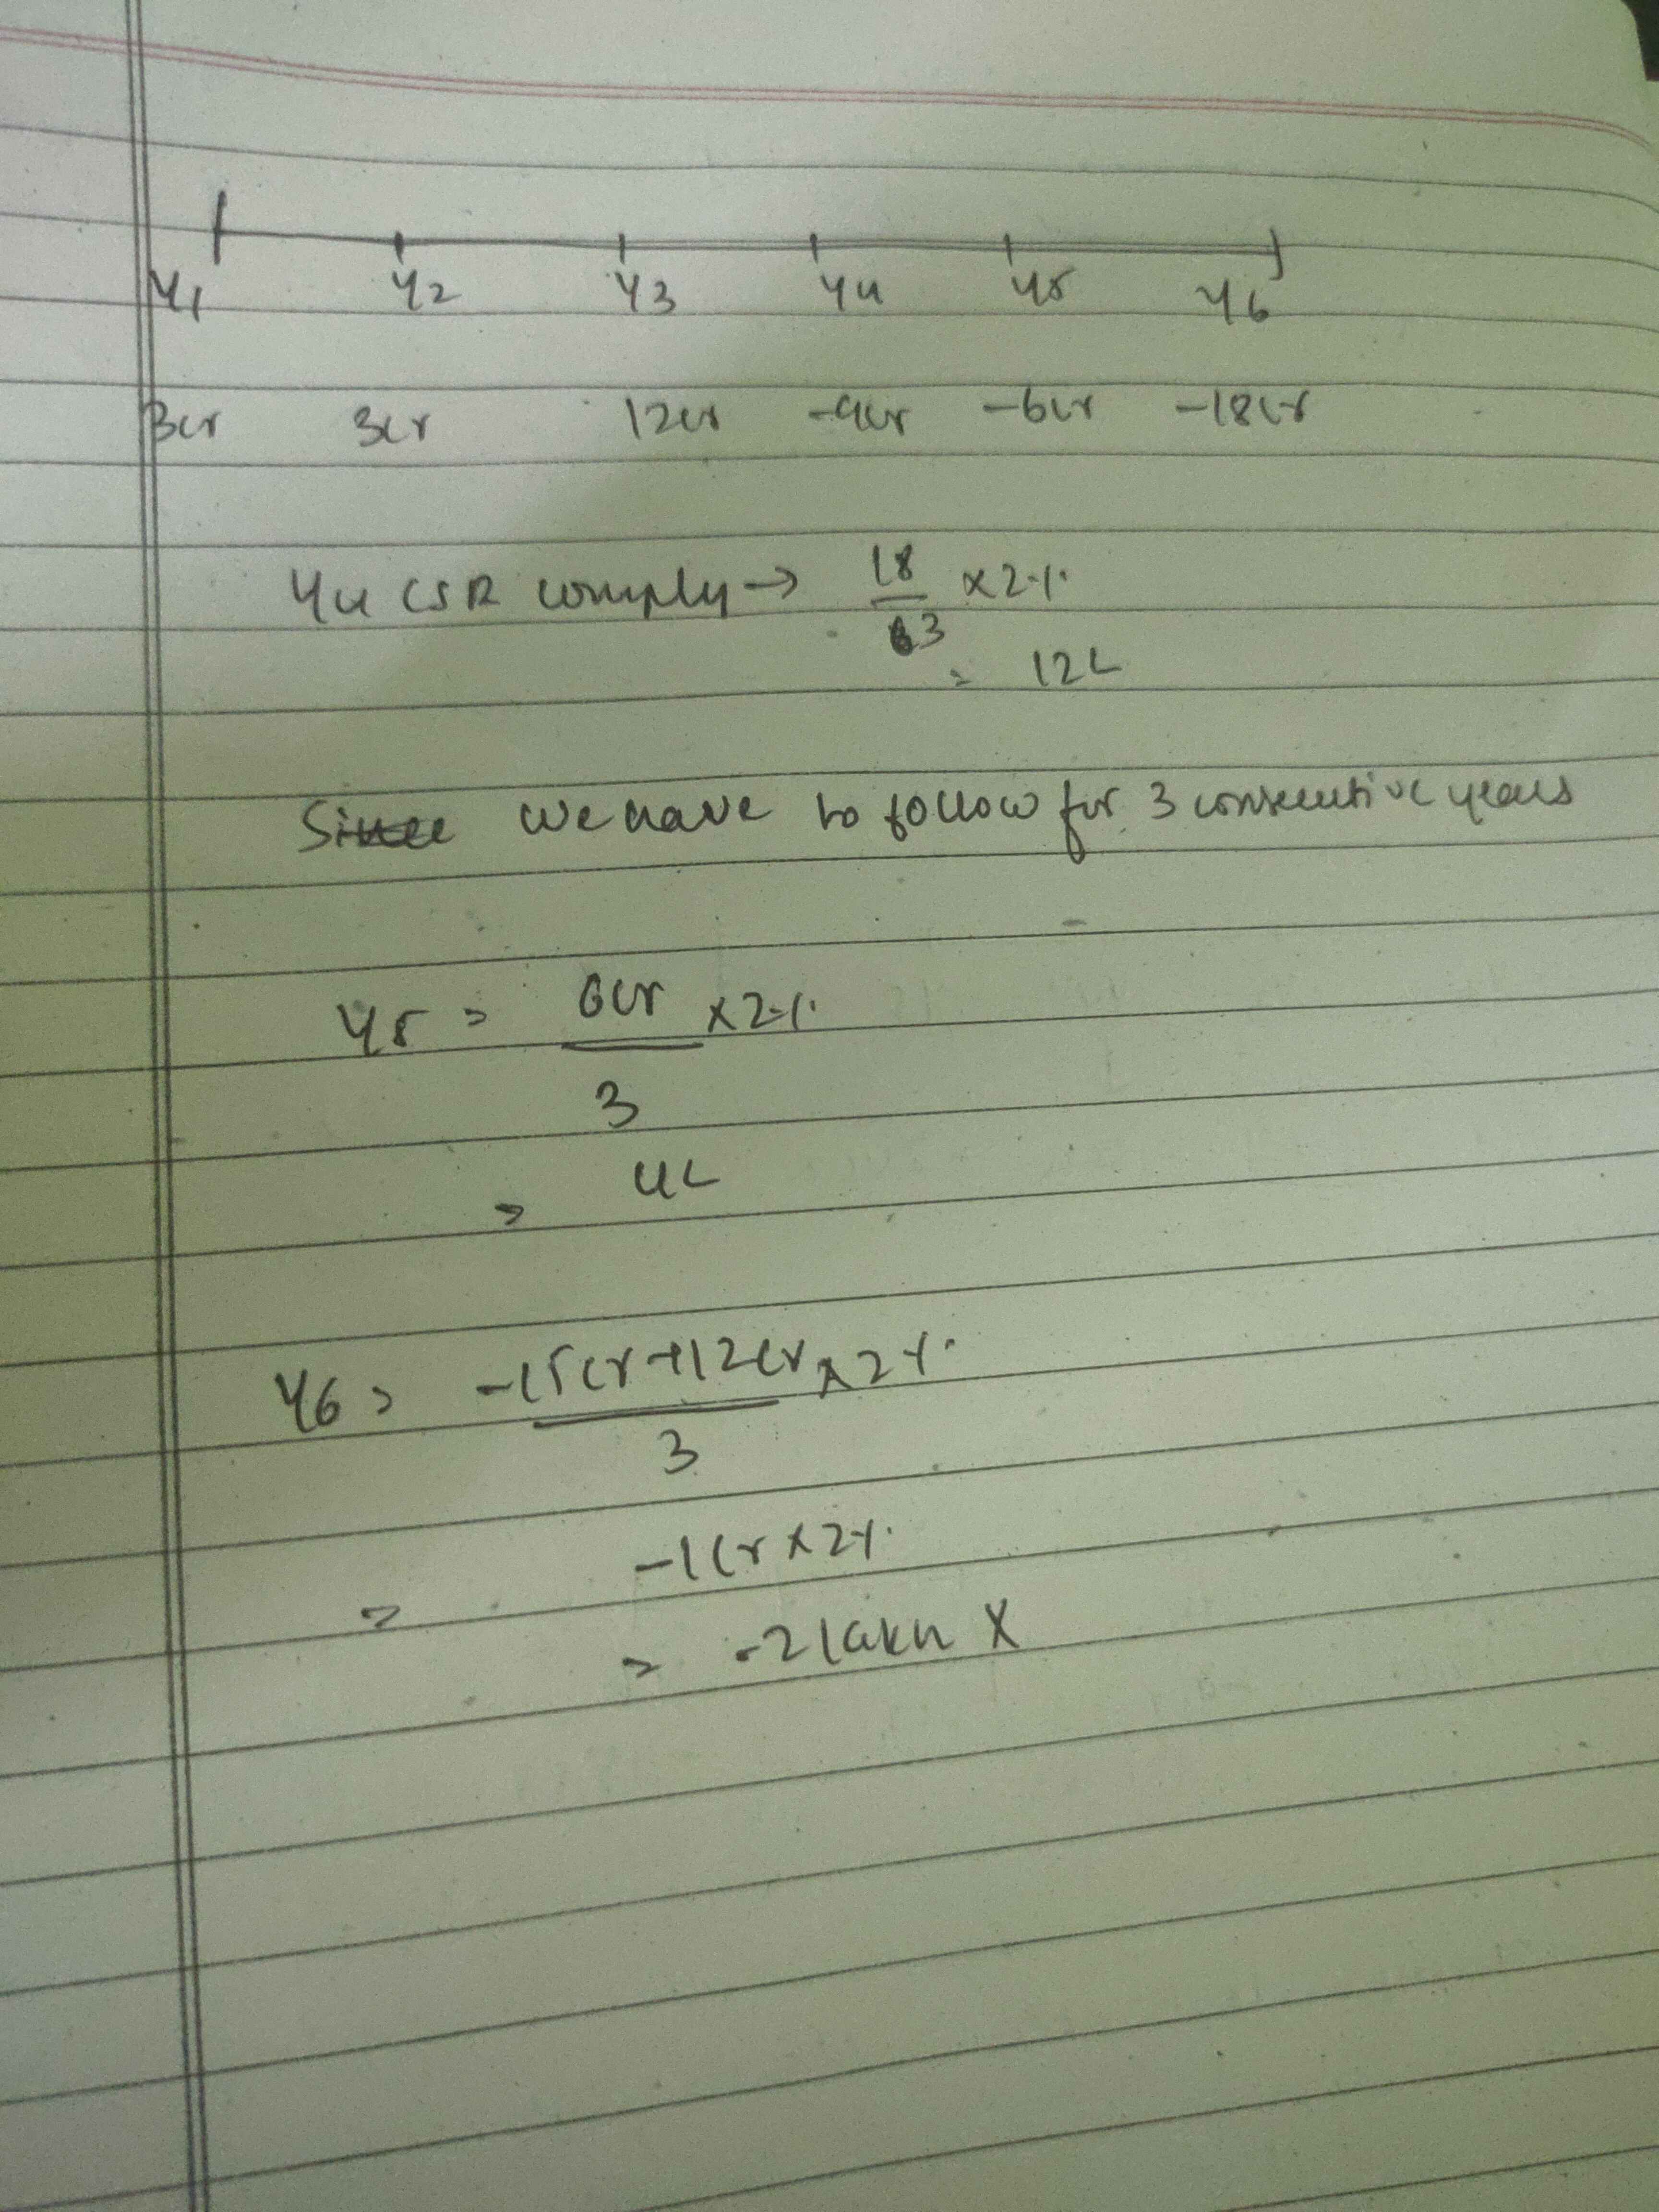 Y1 Y2 Y3 Y4 Y5 Y6
3cr 3cr 12cr -9cr -6cr -18cr
Y4 CSR comply → 18 x 2%
3
= 12L
Since we have to follow for 3 consecutive years
Y5 = 6cr x 2%
3
= 4L
Y6 = -15cr+12cr x 2%
3
= -1cr x 2%
= -2 lakh X